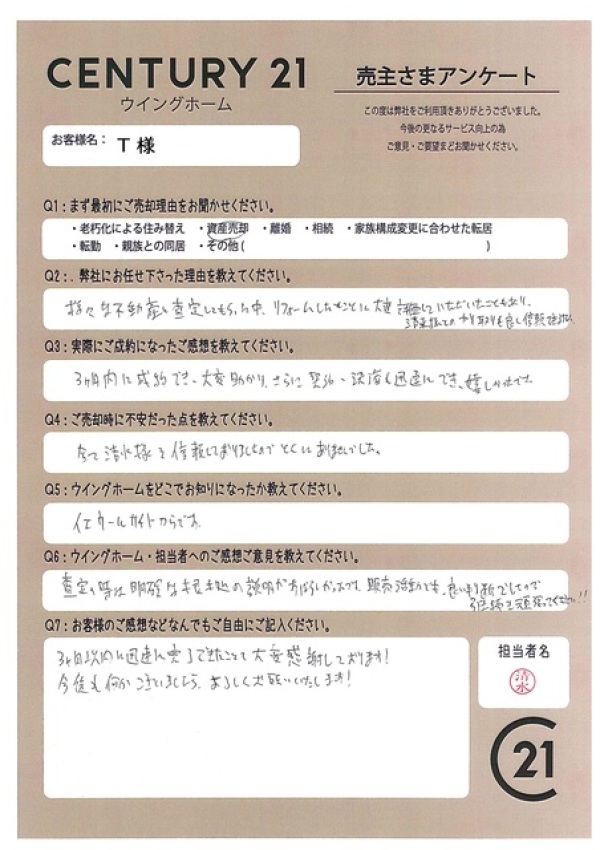 CENTURY 21
ウイングホーム
売主さまアンケート
この度は弊社をご利用頂きありがとうございました。
今後の更なるサービス向上の為
ご意見・ご要望まどお聞かせください。
お客様名： T 様
Q1：まず最初にご売却理由をお聞かせください。
・老朽化による住み替え ・資産売却 ・離婚 ・相続 ・家族構成変更に合わせた転居
・転勤 ・親族との同居 ・その他 ( )
Q2：. 弊社にお任せ下さった理由を教えてください。
様々な不動産で査定してもらった中、リフォームしたことに大変 評価していただいたこともあり、
清水様との やり取りも良く信頼
Q3：実際にご成約になったご感想を教えてください。
3ヶ月内に成約でき、大変助かり、さらに 契約・決済も迅速にでき、嬉しかったです。
Q4：ご売却時に不安だった点を教えてください。
全て清水様を信頼しておりましたので とくにありませんでした。
Q5：ウイングホームをどこでお知りになったか教えてください。
イエウールサイトからです。
Q6：ウイングホーム・担当者へのご感想ご意見を教えてください。
査定の時は明確な の説明がすばらしかったです。販売活動も 良い でしたので
頑張ってください!!
Q7：お客様のご感想などなんでもご自由にご記入ください。
3ヶ月以内に迅速に完了できたこと 大変感謝しております!
今後も何かございましたら、よろしくお願いいたします!
担当者名
清水
21